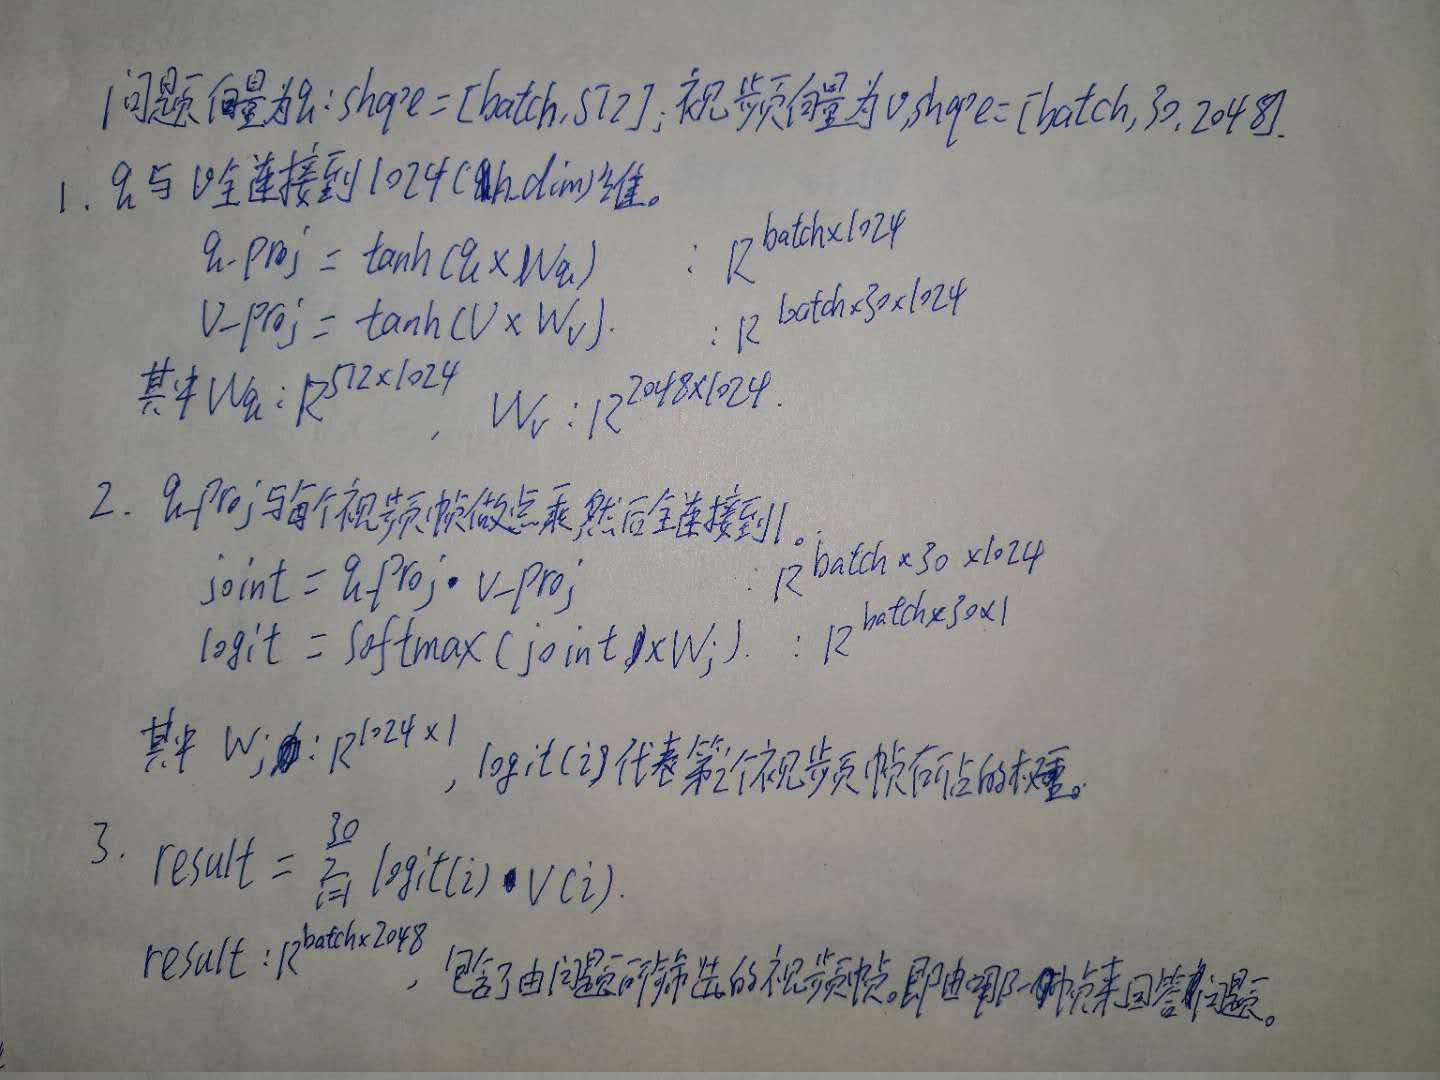 问题向量为q: shape=[batch,512]; 视频向量为v,shape=[batch,30,2048].
1. q与v全连接到1024(h_dim)维。
q_proj = tanh(q×Wq) : R^batch×1024
v_proj = tanh(V×Wv). : R^batch×30×1024
其中Wq: R^512×1024, Wv: R^2048×1024.
2. q_proj与每个视频帧做点乘,然后全连接到1。
joint = q_proj·v_proj : R^batch×30×1024
logit = softmax(joint×Wj). : R^batch×30×1
其中 Wj: R^1024×1, logit(i)代表第i个视频帧所占的权重。
3. result = ∑_{i=1}^{30} logit(i)·V(i).
result: R^batch×2048, 包含了由问题所筛选的视频帧。即由哪一帧来回答问题。